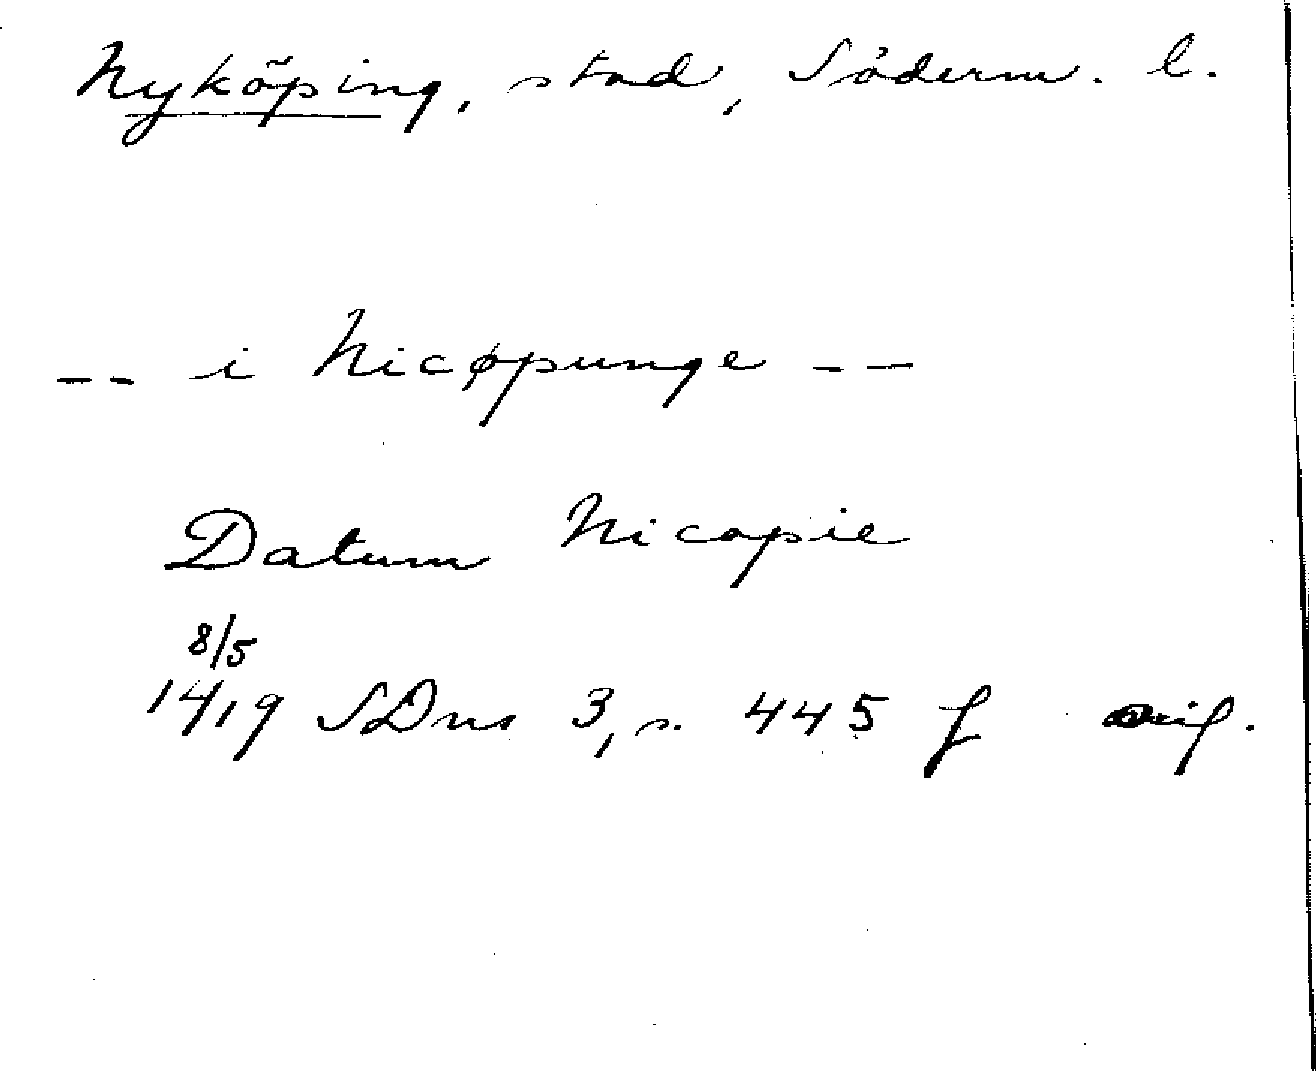 Nyköping, stad, Söderm. l.
-- i Nicøpunge --
Datum Nicopie
8/5
1419 SDns 3, s. 445 f orig.